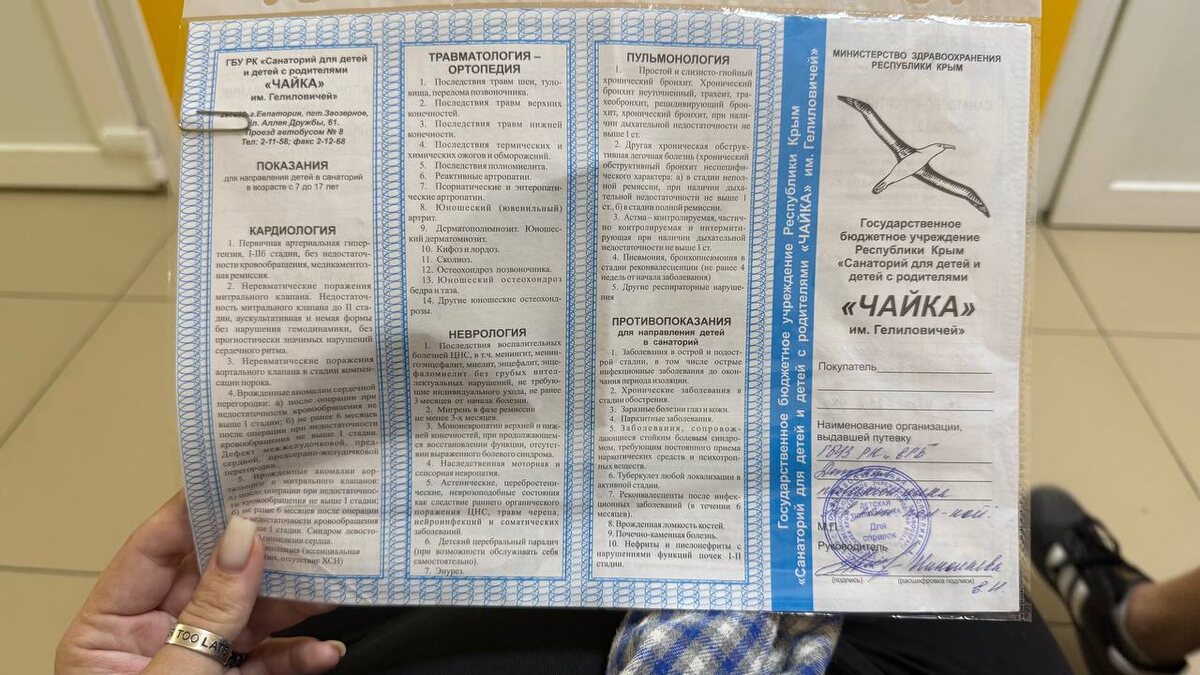 ГБУ РК «Санаторий для детей
и детей с родителями
«ЧАЙКА»
им. Гелиловичей»
г.Евпатория, пгт.Заозерное,
ул. Аллея Дружбы, 61.
Проезд автобусом № 8
Тел: 2-11-58; факс 2-12-68
ПОКАЗАНИЯ
для направления детей в санаторий
в возрасте с 7 до 17 лет
КАРДИОЛОГИЯ
1. Первичная артериальная гипер-
тензия, I-IIб стадии, без недостаточ-
ности кровообращения, медикаментоз-
ная ремиссия.
2. Неревматические поражения
митрального клапана. Недостаточ-
ность митрального клапана до II ста-
дии, аускультативная и немая формы
без нарушения гемодинамики, без
прогностически значимых нарушений
сердечного ритма.
3. Неревматические поражения
аортального клапана в стадии компен-
сации порока.
4. Врожденные аномалии сердечной
перегородки: а) после операции при
недостаточности кровообращения не
выше 1 стадии; б) не ранее 6 месяцев
после операции при недостаточности
кровообращения не выше 1 стадии.
Дефект межжелудочковой, пред-
сердной, предсердно-желудочковой
перегородки.
5. Врожденные аномалии аор-
тального и митрального клапанов:
а) после операции при недостаточнос-
ти кровообращения не выше 1 стадии;
б) не ранее 6 месяцев после операции
недостаточности кровообращения
выше 1 стадии. Синдром левосто-
роннего
сердца.
(эссенциальная
отсутствие ХСН)
ТРАВМАТОЛОГИЯ –
ОРТОПЕДИЯ
1. Последствия травм шеи, туло-
вища, перелома позвоночника.
2. Последствия травм верхних
конечностей.
3. Последствия травм нижней
конечности.
4. Последствия термических и
химических ожогов и обморожений.
5. Последствия полиомиелита.
6. Реактивные артропатии.
7. Псориатические и энтеропати-
ческие артропатии.
8. Юношеский (ювенильный)
артрит.
9. Дерматополимиозит. Юношес-
кий дерматомиозит.
10. Кифоз и лордоз.
11. Сколиоз.
12. Остеохондроз позвоночника.
13. Юношеский остеохондроз
бедра и таза.
14. Другие юношеские остеохонд-
розы.
НЕВРОЛОГИЯ
1. Последствия воспалительных
болезней ЦНС, в т.ч. менингит, менин-
гоэнцефалит, миелит, энцефалит, энце-
фаломиелит без грубых интел-
лектуальных нарушений, не требую-
щие индивидуального ухода, не ранее
3 месяцев от начала болезни.
2. Мигрень в фазе ремиссии
не менее 3-х месяцев.
3. Мононевропатии верхней и ниж-
ней конечностей, при продолжающем-
ся восстановлении функции, отсутст-
вии выраженного болевого синдрома.
4. Наследственная моторная и
сенсорная невропатия.
5. Астенические, церебростени-
ческие, неврозоподобные состояния
как следствие раннего органического
поражения ЦНС, травм черепа,
нейроинфекций и соматических
заболеваний.
6. Детский церебральный паралич
(при возможности обслуживать себя
самостоятельно).
7. Энурез.
ПУЛЬМОНОЛОГИЯ
1. Простой и слизисто-гнойный
хронический бронхит. Хронический
бронхит неуточненный, трахеит, тра-
хеобронхит, рецидивирующий брон-
хит, хронический бронхит, при нали-
чии дыхательной недостаточности не
выше 1 ст.
2. Другая хроническая обструк-
тивная легочная болезнь (хронический
обструктивный бронхит неспецифи-
ческого характера: а) в стадии непол-
ной ремиссии, при наличии дыха-
тельной недостаточности не выше 1
ст., б) в стадии полной ремиссии.
3. Астма – контролируемая, частич-
но контролируемая и интермити-
рующая при наличии дыхательной
недостаточности не выше 1 ст.
4. Пневмония, бронхопневмония в
стадии реконвалесценции (не ранее 4
недель от начала заболевания)
5. Другие респираторные наруше-
ния
ПРОТИВОПОКАЗАНИЯ
для направления детей
в санаторий
1. Заболевания в острой и подост-
рой стадии, в том числе острые
инфекционные заболевания до окон-
чания периода изоляции.
2. Хронические заболевания в
стадии обострения.
3. Заразные болезни глаз и кожи.
4. Паразитные заболевания.
5. Заболевания, сопровож-
дающиеся стойким болевым синдро-
мом, требующим постоянного приема
наркотических средств и психотроп-
ных веществ.
6. Туберкулет любой локализации в
активной стадии.
7. Реконвалесценты после инфек-
ционных заболеваний (в течении 6
месяцев).
8. Врожденная ломкость костей.
9. Почечно-каменная болезнь.
10. Нефриты и пиелонефриты с
нарушениями функций почек I-II
стадии.
Государственное бюджетное учреждение Республики Крым
«Санаторий для детей и детей с родителями «ЧАЙКА» им. Гелиловичей»
МИНИСТЕРСТВО ЗДРАВООХРАНЕНИЯ
РЕСПУБЛИКИ КРЫМ
Государственное
бюджетное учреждение
Республики Крым
«Санаторий для детей и
детей с родителями
«ЧАЙКА»
им. Гелиловичей»
Покупатель
Наименование организации,
выдавшей путевку
ДЕТСКАЯ
Для
справок
М.П.
Руководитель
(подпись) (расшифровка подписи)
TOO LATE